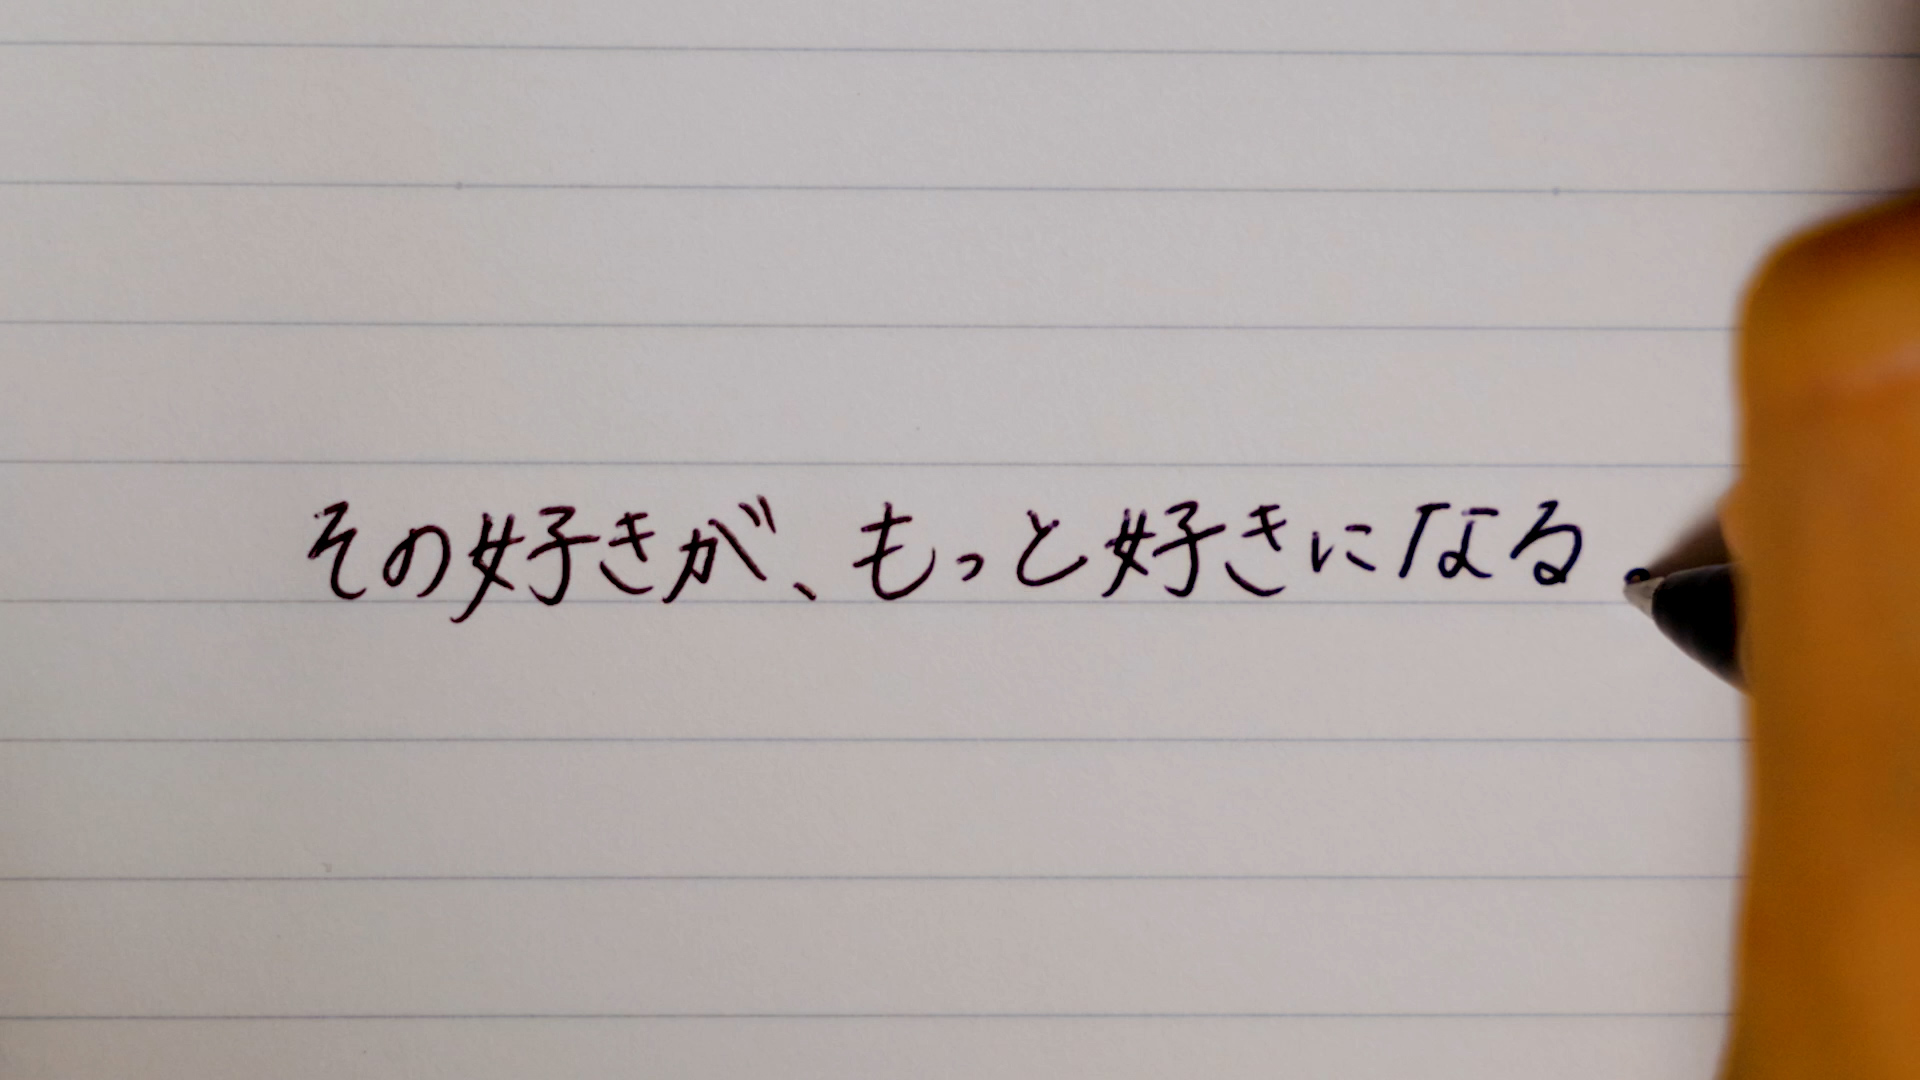 その好きが、もっと好きになる。